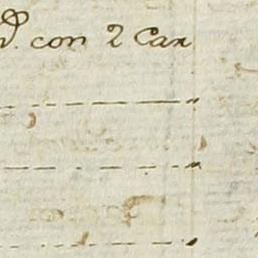 con 2 Car